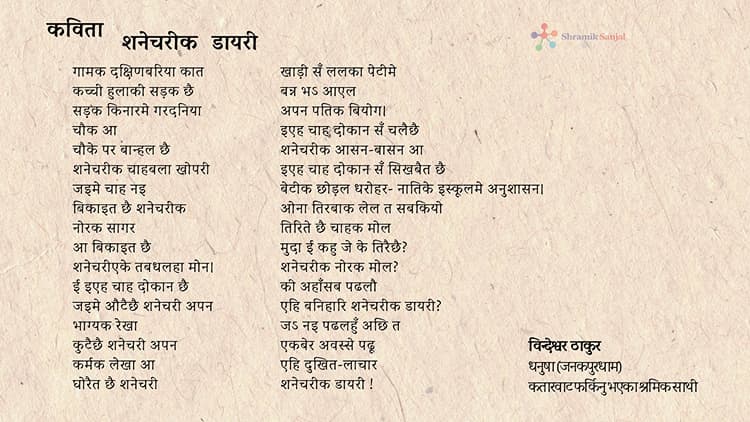 कविता
शनेचरीक डायरी
Shramik Sanjal
गामक दक्षिणबरिया कात
कच्ची हुलाकी सड़क छै
सड़क किनारमे गरदनिया
चौक आ
चौके पर बान्हल छै
शनेचरीक चाहबला खोपरी
जइमे चाह नइ
बिकाइत छै शनेचरीक
नोरक सागर
आ बिकाइत छै
शनेचरीएके तबधलहा मोन।
ई इएह चाह दोकान छै
जइमे औटैछै शनेचरी अपन
भाग्यक रेखा
कुटैछै शनेचरी अपन
कर्मक लेखा आ
घोरैत छै शनेचरी
खाड़ी सँ ललका पेटीमे
बन्न भऽ आएल
अपन पतिक बियोग।
इएह चाह दोकान सँ चलैछै
शनेचरीक आसन-बासन आ
इएह चाह दोकान सँ सिखबैत छै
बेटीक छोड़ल धरोहर- नातिके इस्कूलमे अनुशासन।
ओना तिरबाक लेल त सबकियो
तिरिते छै चाहक मोल
मुदा ई कहु जे के तिरैछै?
शनेचरीक नोरक मोल?
की अहाँसब पढलौ
एहि बनिहारि शनेचरीक डायरी?
जऽ नइ पढलहुँ अछि त
एकबेर अवस्से पढू
एहि दुखित-लाचार
शनेचरीक डायरी !
विन्देश्वर ठाकुर
धनुषा (जनकपुरधाम)
कतारबाट फर्किनु भएका श्रमिक साथी